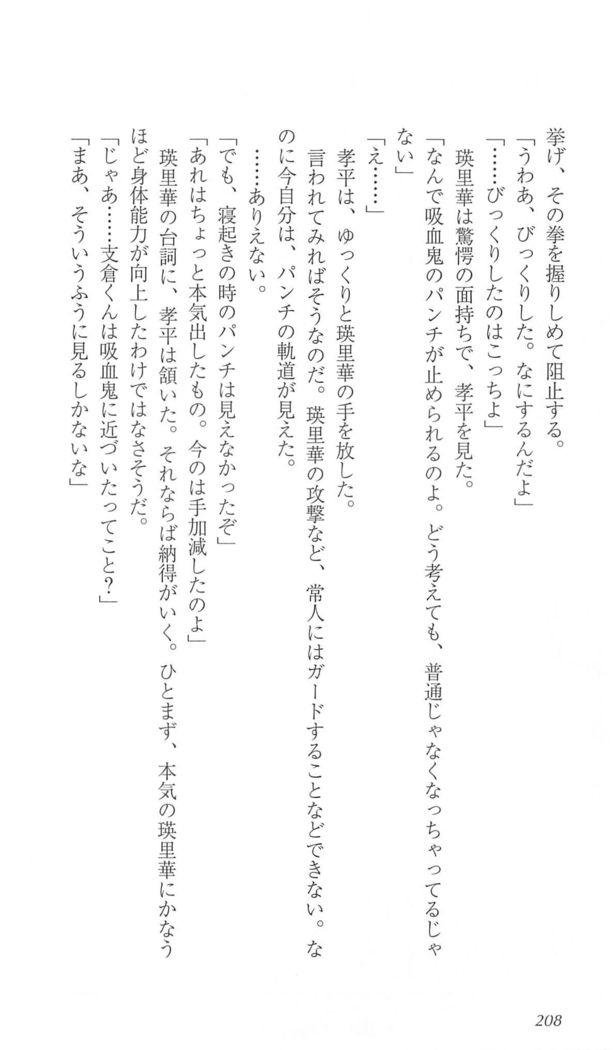 挙げ、その拳を握りしめて阻止する。
「うわあ、びっくりした。なにするんだよ」
「……びっくりしたのはこっちよ」
瑛里華は驚愕の面持ちで、孝平を見た。
「なんで吸血鬼のパンチが止められるのよ。どう考えても、普通じゃなくなっちゃってるじゃ
ない」
「え……」
孝平は、ゆっくりと瑛里華の手を放した。
言われてみればそうなのだ。瑛里華の攻撃など、常人にはガードすることなどできない。な
のに今自分は、パンチの軌道が見えた。
……ありえない。
「でも、寝起きの時のパンチは見えなかったぞ」
「あれはちょっと本気出したもの。今のは手加減したのよ」
瑛里華の台詞に、孝平は頷いた。それならば納得がいく。ひとまず、本気の瑛里華にかなう
ほど身体能力が向上したわけではなさそうだ。
「じゃあ……支倉くんは吸血鬼に近づいたってこと?」
「まあ、そういうふうに見るしかないな」
208